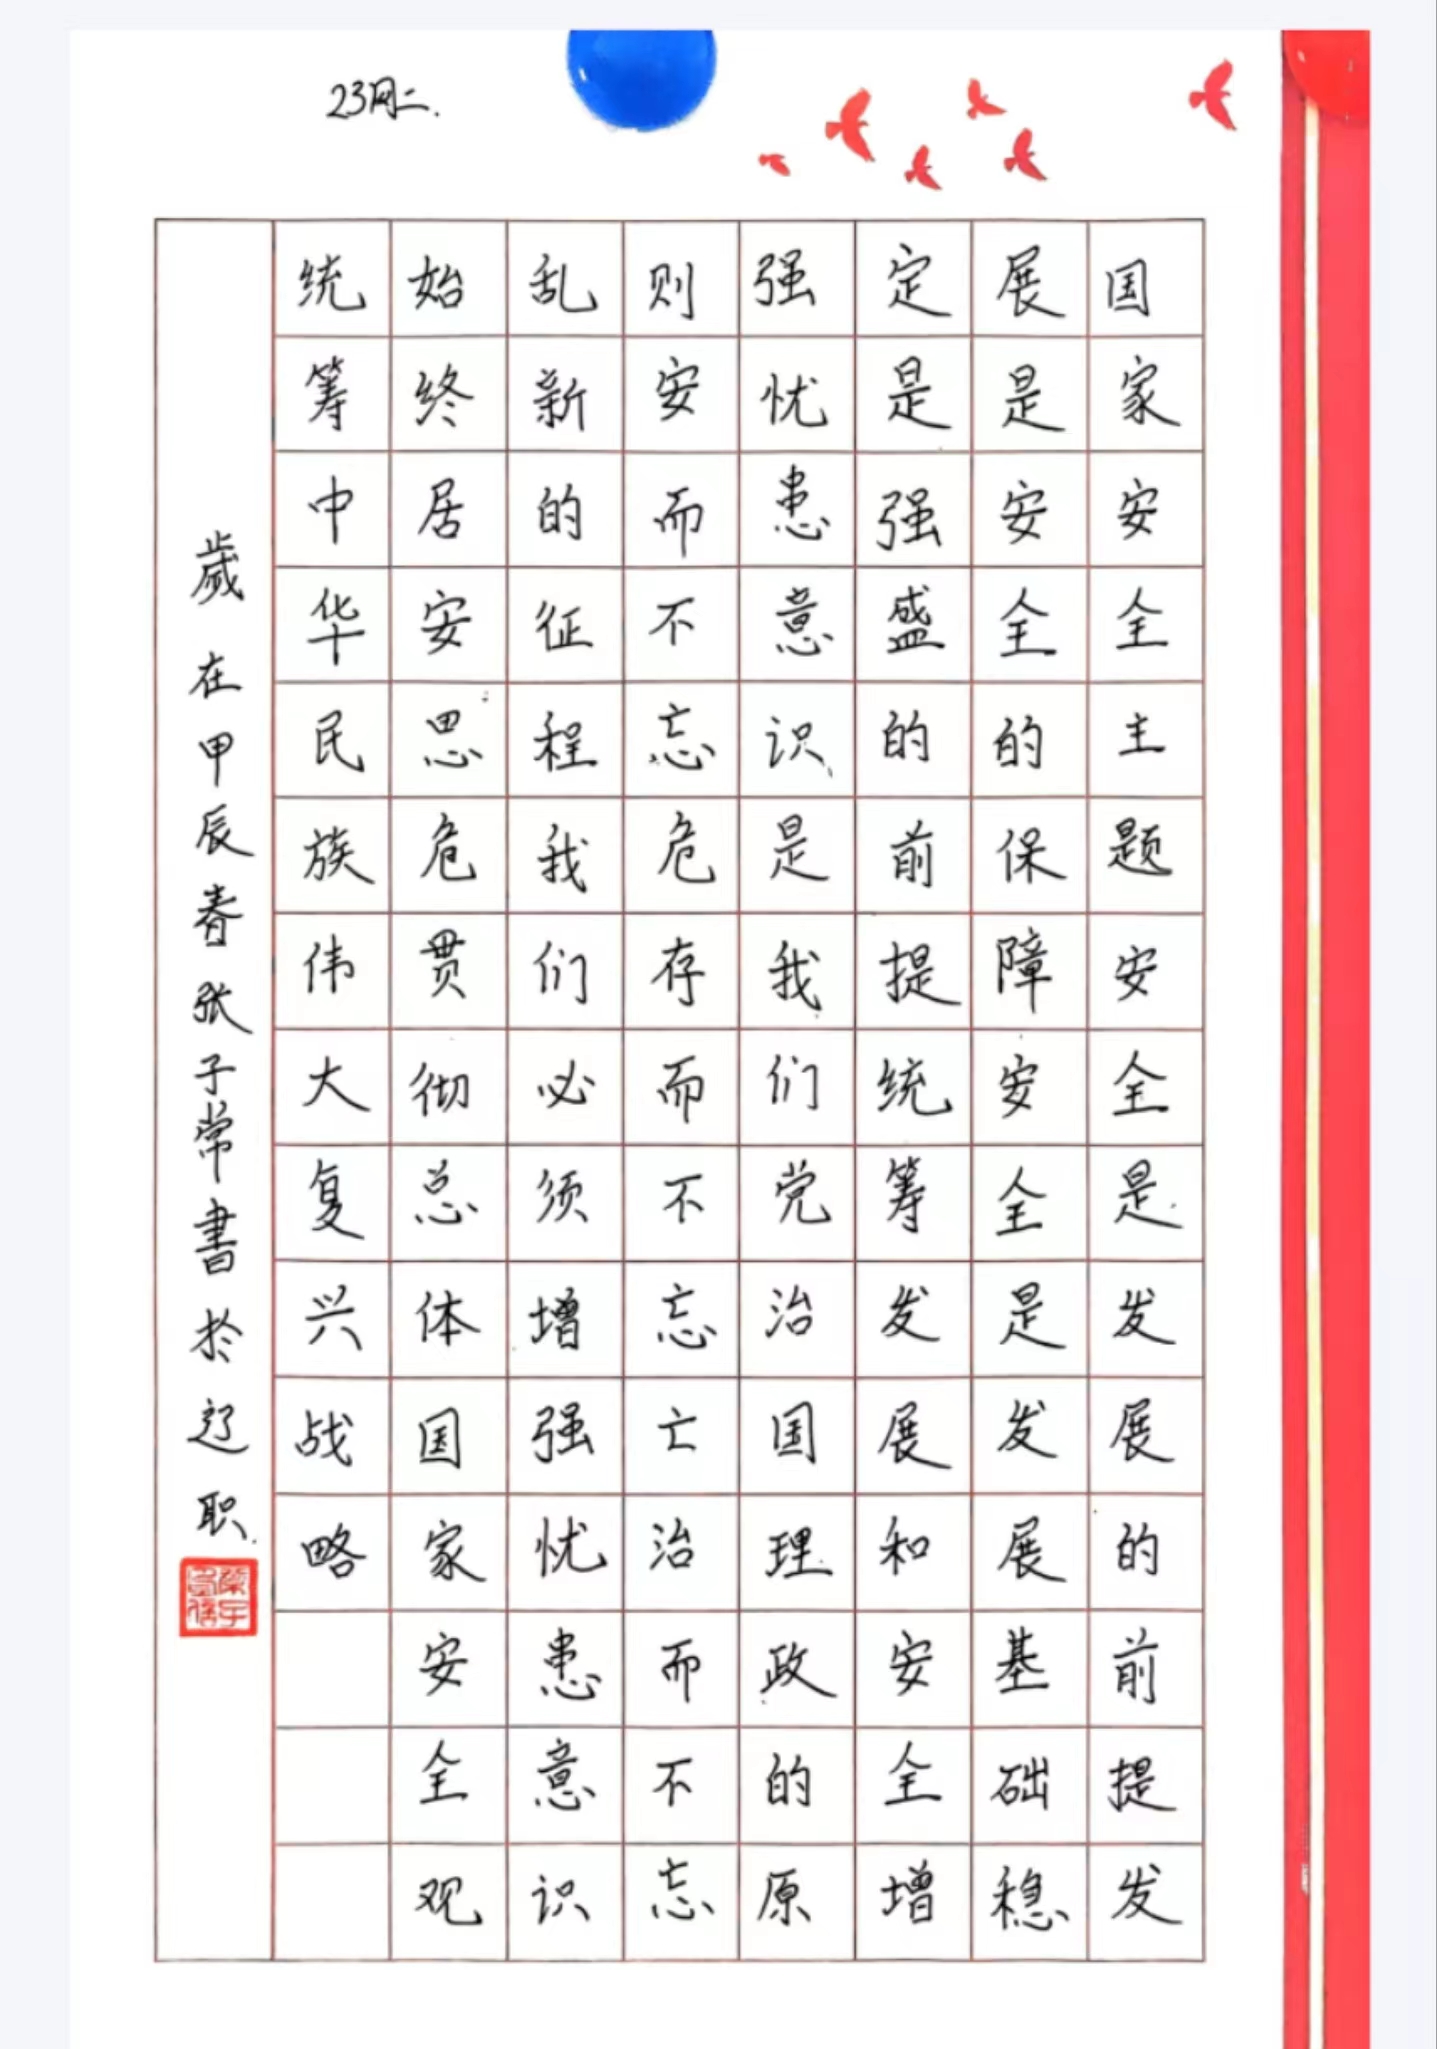 23网二.
国家安全主题安全是发展的前提发
展是安全的保障安全是发展基础稳
定是强盛的前提统筹发展和安全增
强忧患意识是我们党治国理政的原
则安而不忘危存而不忘亡治而不忘
乱新的征程我们必须增强忧患意识
始终居安思危贯彻总体国家安全观
统筹中华民族伟大复兴战略
歲在甲辰春张子常書於辽职